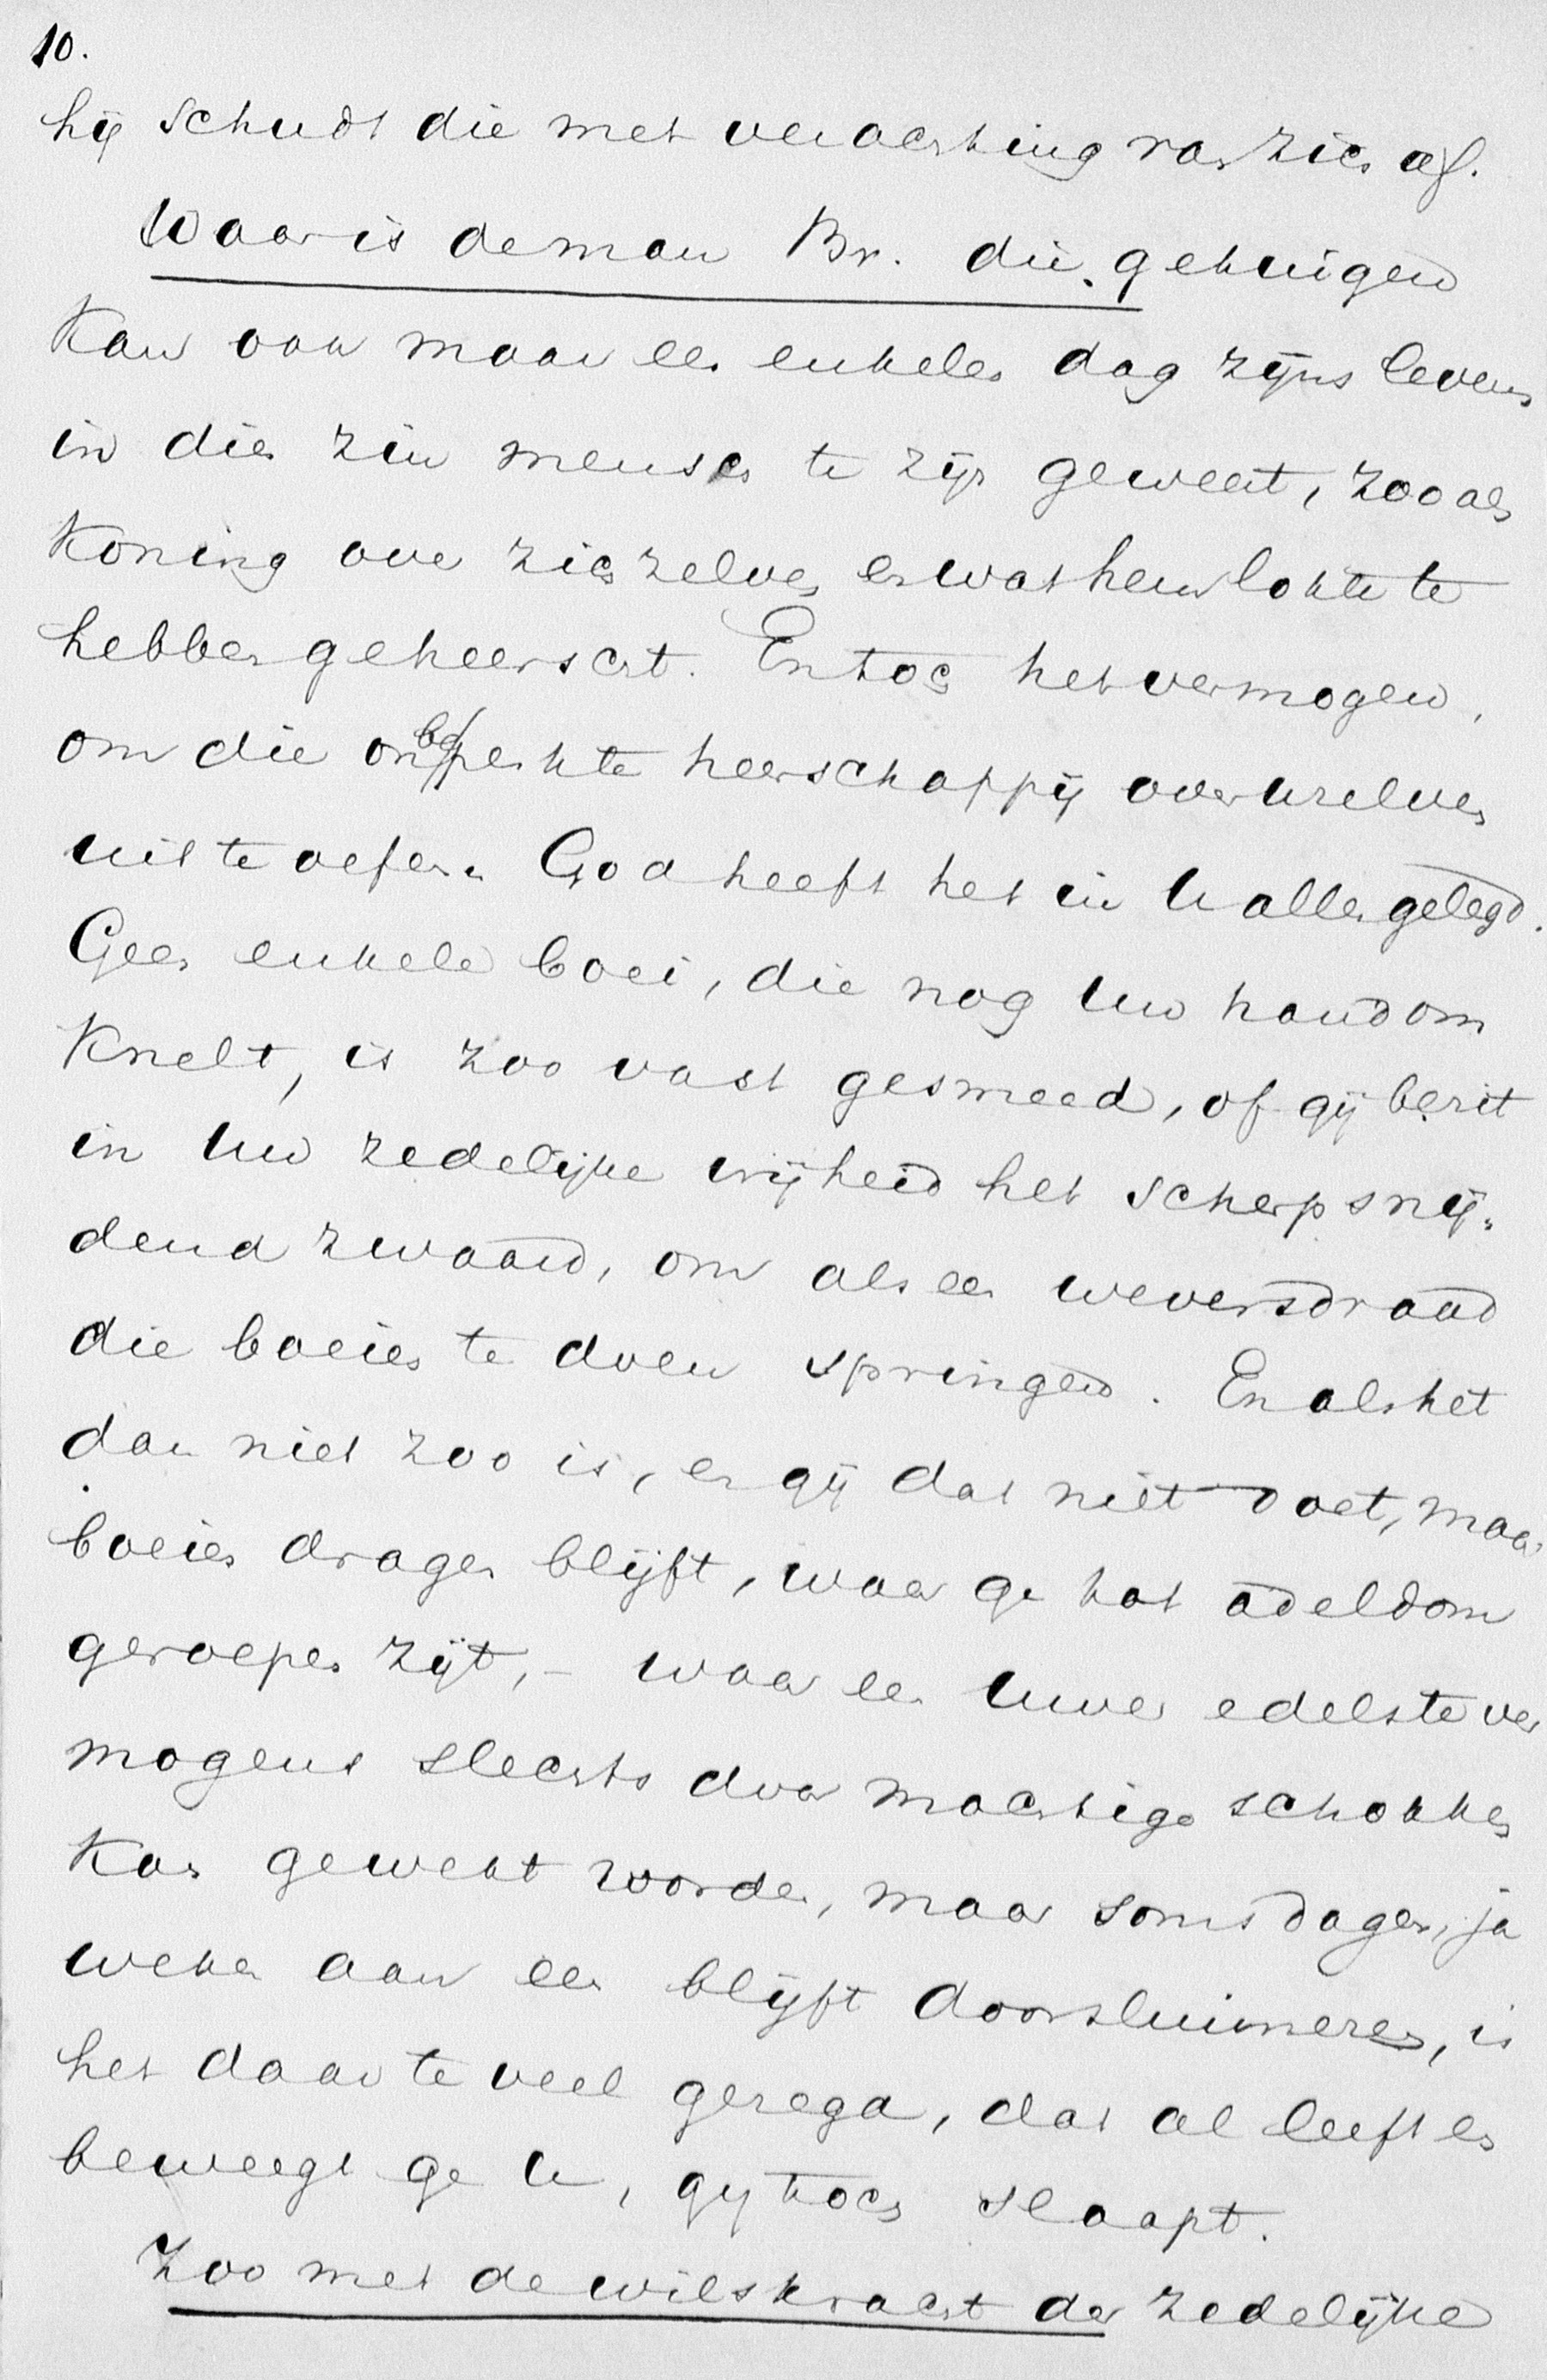 10.
hij schudt die met verachting van zich af.
Waar is de man Br. die getuigen
kan ook maar een enkelen dag zijns levens
in dien zin mensch te zijn geweest, zooals
Koning over zichzelven en wat hem lokte te
hebben geheerscht. En toch het vermogen,
om die onbeperkte heerschappij over uzelven
uit te oefenen God heeft het in U allen gelegd.
Geen enkele boei, die nog Uw hand om
knelt, is zoo vast gesmeed, of gij bezit
in Uw zedelijke vrijheid het scherp snij-
dend zwaard, om als een weversdraad
die boeien te doen springen. En als het
dan niet zoo is, en gij dat niet doet, maar
boeien dragen blijft, waar ge tot adeldom
geroepen zijt, - waar een Uwer edelste ver
mogens slechts door machtige schokken
kan gewekt worden, maar soms dagen, ja
weken aan een blijft doorsluimeren, is
het daar te veel gezegd, dat al leeft en
beweegt ge U, gij toch slaapt.
Zoo met de wilskracht der zedelijke